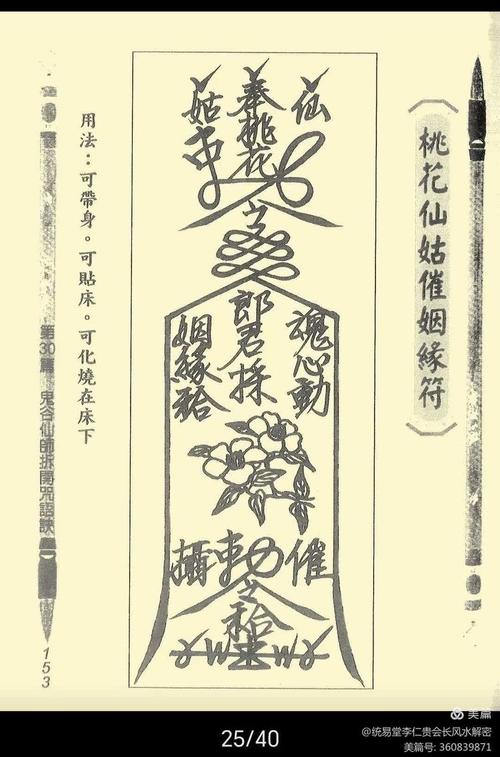 桃花仙姑催姻緣符
仙
奉桃花
姑
魂心動
郎君採
姻緣
催
攝
用法：可帶身。可貼床。可化燒在床下
第30篇 鬼谷仙師拆開咒語訣
153
美篇
@统易堂李仁贵会长风水解密
美篇号: 360839871
25/40